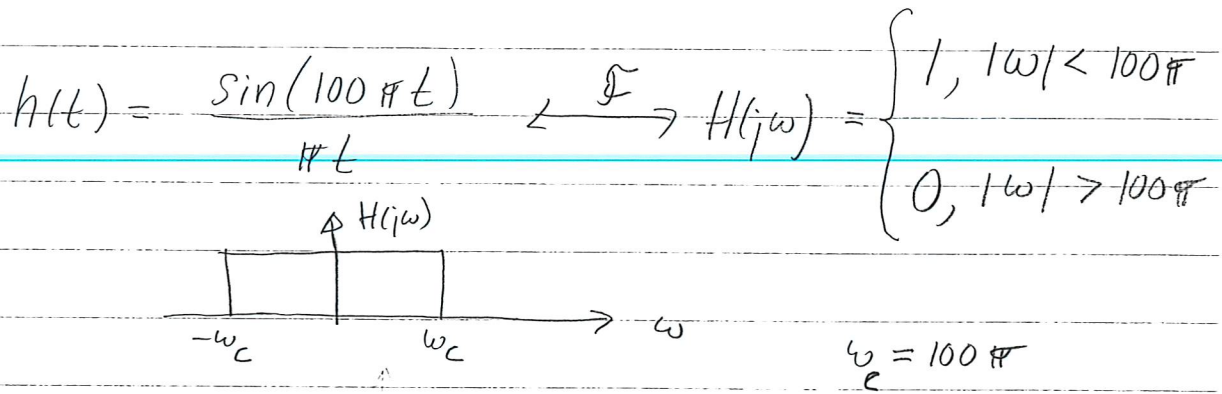 h(t) = sin(100πt) / πt ⟷ 𝓕 H(jω) = { 1, |ω| < 100π
0, |ω| > 100π
H(jω)
-ω_c ω_c ω
ω_c = 100π